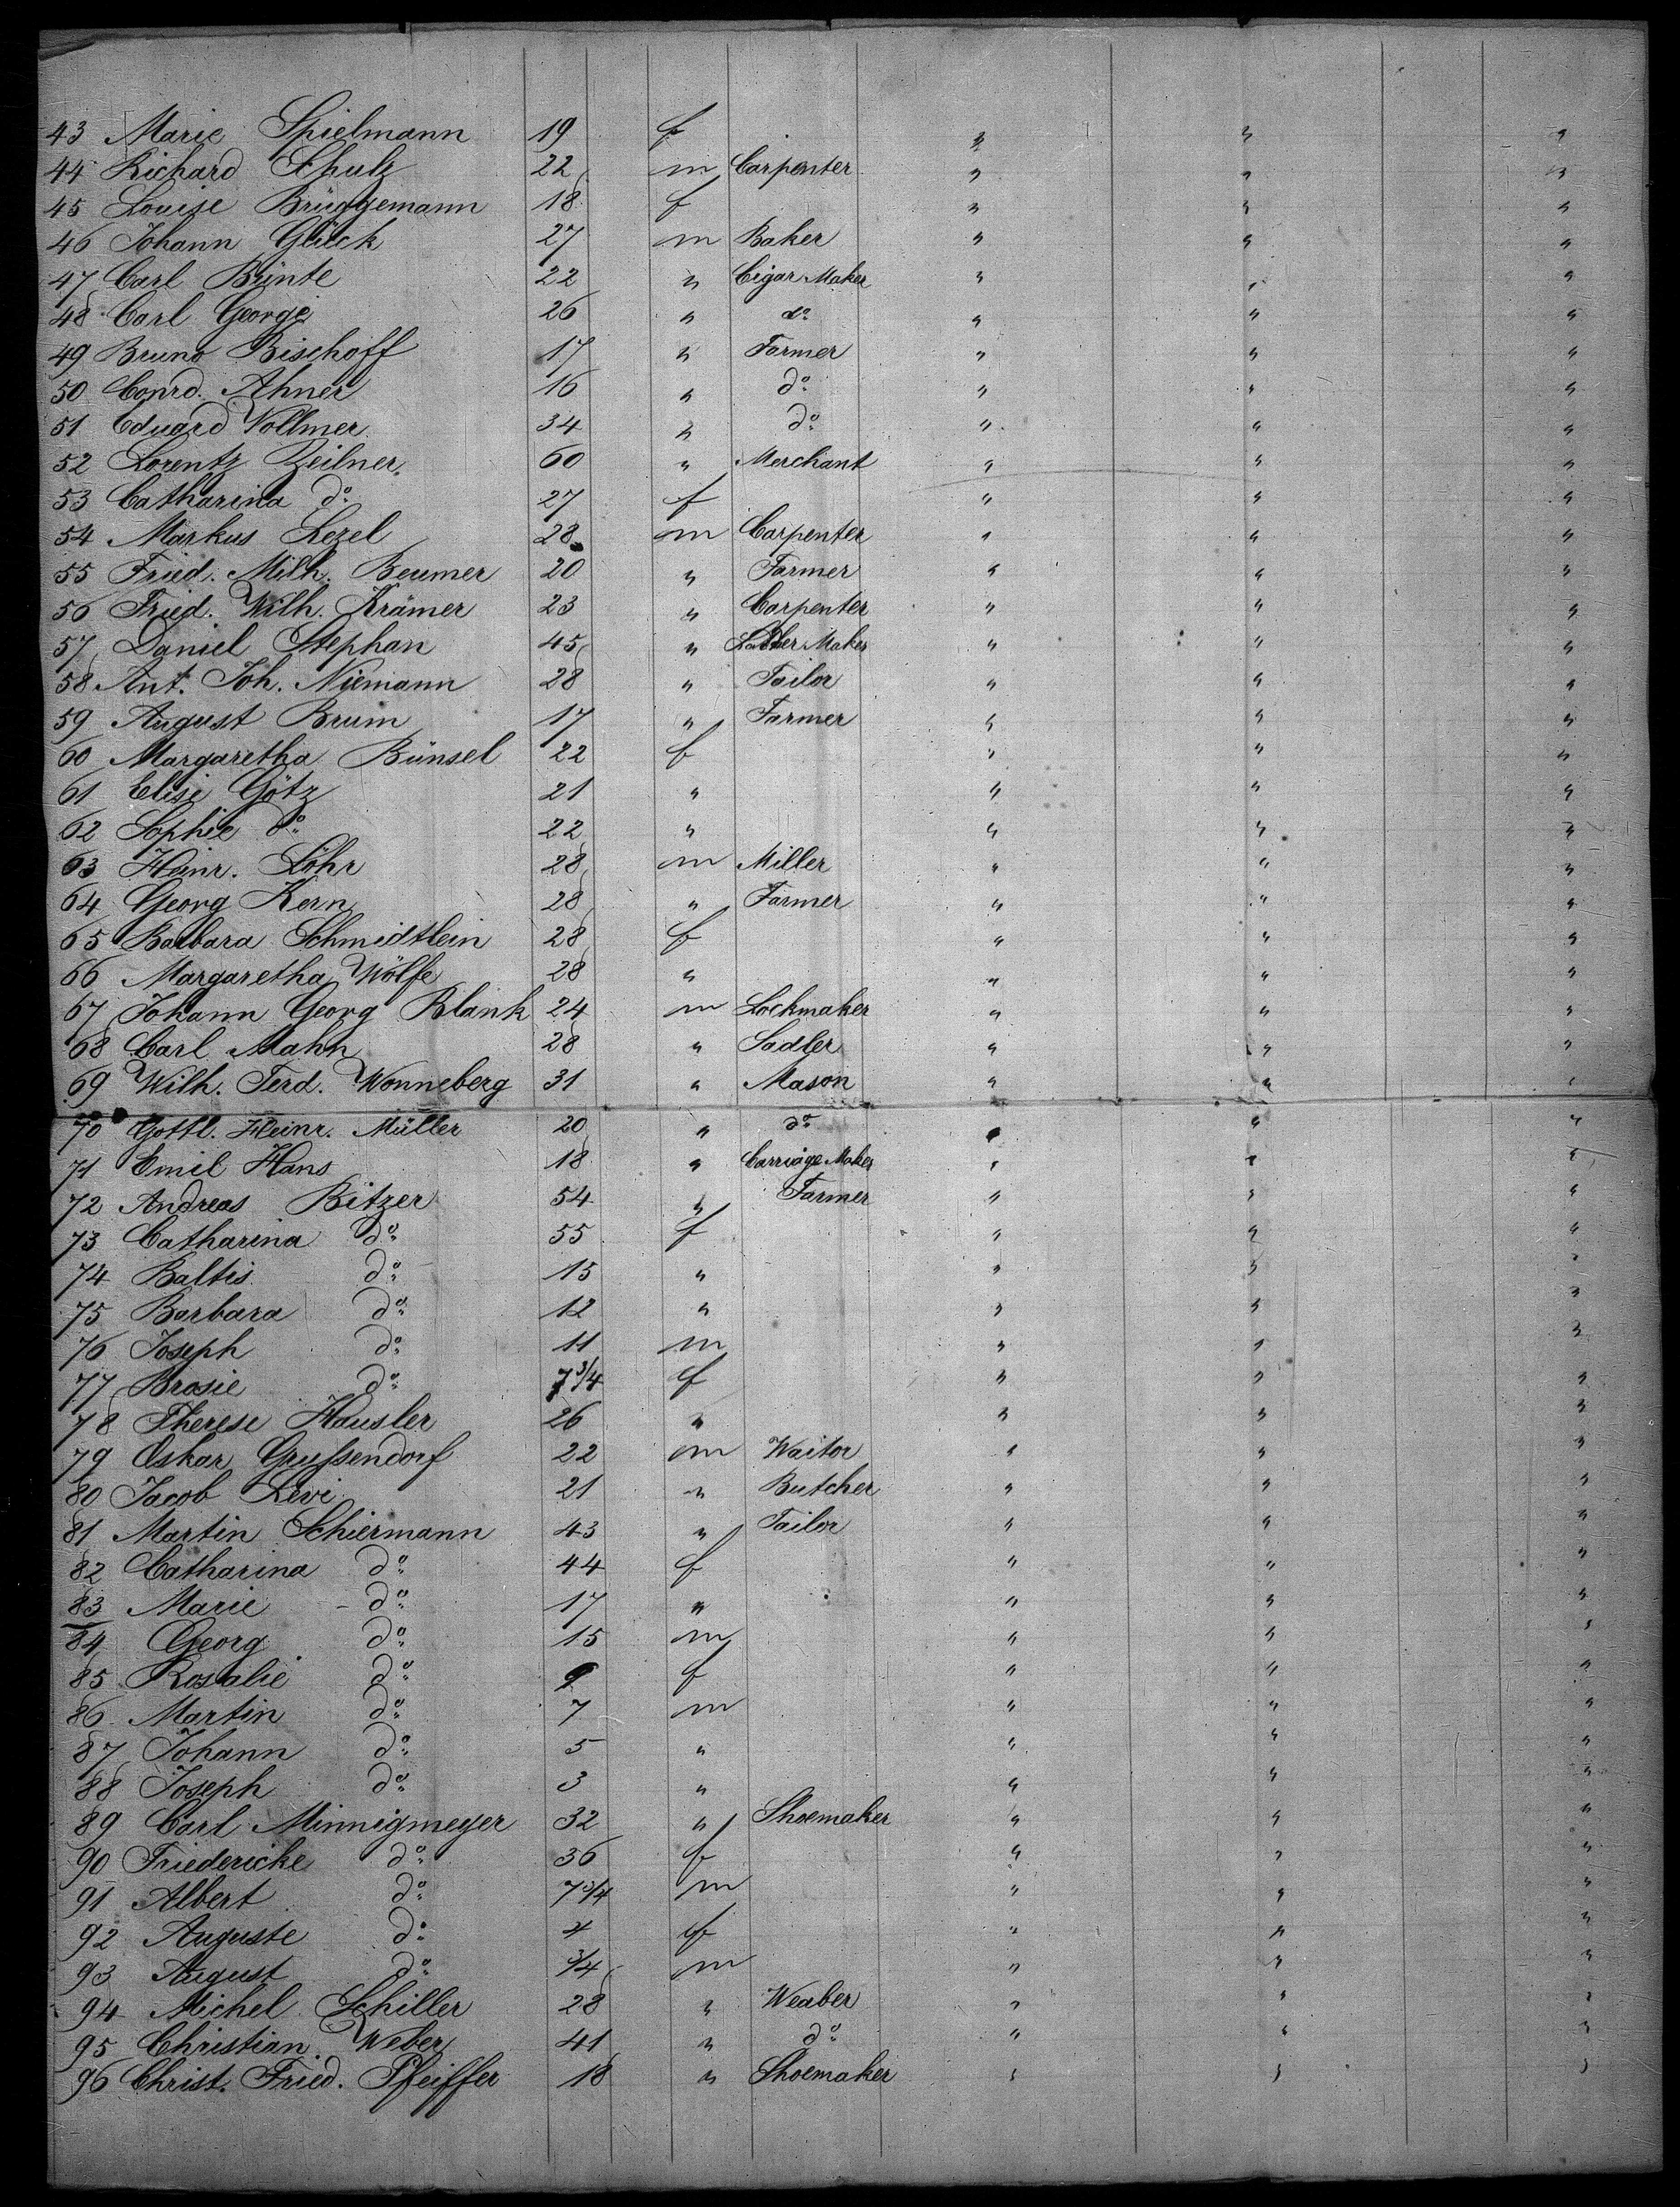 43 Marie Spielmann 19 f " " "
44 Richard Schulz 22 m Carpenter " " "
45 Louise Brüggemann 18 f " " "
46 Johann Glück 27 m Baker " " "
47 Carl Bünte 22 " Cigar Maker " " "
48 Carl George 26 " do " " "
49 Bruno Bischoff 17 " Farmer " " "
50 Conrd. Ahner 16 " do " " "
51 Eduard Vollmer 34 " do " " "
52 Lorentz Zeilner 60 " Merchant " " "
53 Catharina do 27 f " " "
54 Markus Lezel 28 m Carpenter " " "
55 Fried. Milh. Beumer 20 " Farmer " " "
56 Fried. Wilh. Krämer 23 " Carpenter " " "
57 Daniel Stephan 45 " Maker " " "
58 Ant. Joh. Niemann 28 " Tailor " " "
59 August Brum 17 " Farmer " " "
60 Margaretha Bünsel 22 f " " "
61 Elise Götz 21 " " " "
62 Sophie do 22 " " " "
63 Heinr. Löhr 28 m Miller " " "
64 Georg Kern 28 " Farmer " " "
65 Barbara Schmidtlein 28 f " " "
66 Margaretha Wölfe 28 " " " "
67 Johann Georg Blank 24 m Lockmaker " " "
68 Carl Mahn 28 " Sadler " " "
69 Wilh. Ferd. Wonneberg 31 " Mason " " "
70 Gottl. Heinr. Müller 20 " do " " "
71 Emil Hans 18 " Carriage Maker " " "
72 Andreas Bitzer 54 " Farmer " " "
73 Catharina do 55 f " " "
74 Baltis do 15 " " " "
75 Barbara do 12 " " " "
76 Joseph do 11 m " " "
77 Brosie do 7 3/4 f " " "
78 Therese Häusler 26 " " " "
79 Oskar Grußendorf 22 m Waitor " " "
80 Jacob Levi 21 " Butcher " " "
81 Martin Schiermann 43 " Tailor " " "
82 Catharina do 44 f " " "
83 Marie do 17 " " " "
84 Georg do 15 m " " "
85 Rosalie do 9 f " " "
86 Martin do 7 m " " "
87 Johann do 5 " " " "
88 Joseph do 3 " " " "
89 Carl Minnigmeyer 32 " Shoemaker " " "
90 Friedericke do 36 f " " "
91 Albert do 7 3/4 m " " "
92 Auguste do 4 f " " "
93 August do 3/4 m " " "
94 Michel Schiller 28 " Weaber " " "
95 Christian Weber 41 " do " " "
96 Christ. Fried. Pfeiffer 18 " Shoemaker " " "